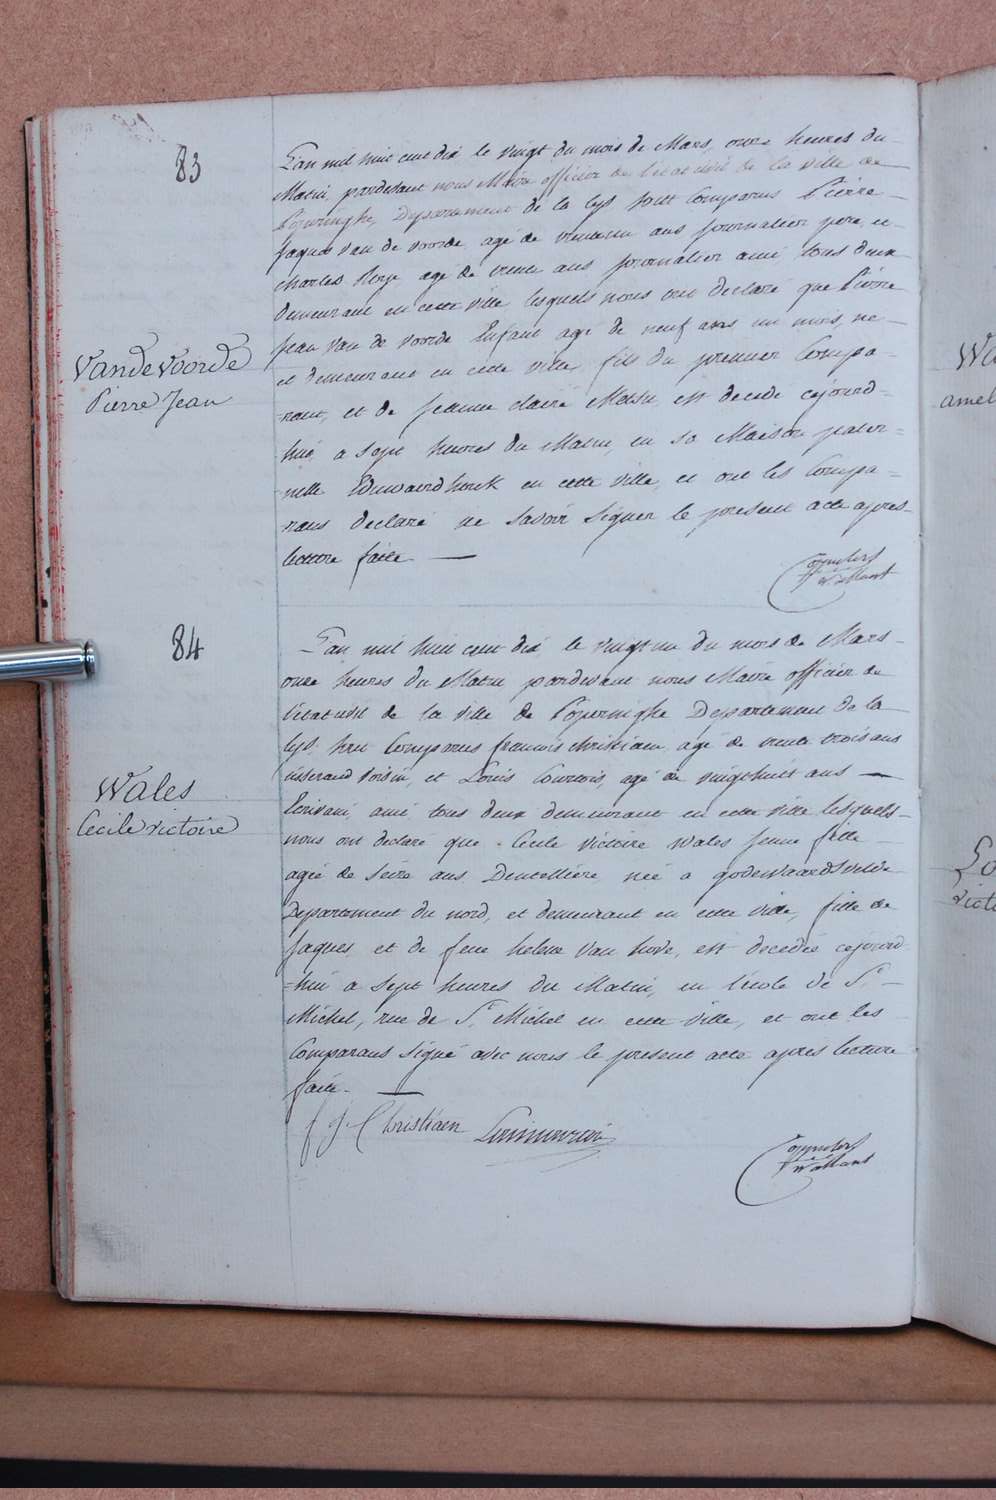 83
Vande Voorde
Pierre Jean
L'an mil huit cent dix le vingt du mois de Mars, onze heures du
Matin, pardevant nous Maire officier de l'etat civil de la ville de
Poperinghe, Departement de la Lys sont Comparus Pierre
Jaques Van de Voorde, agé de ans journalier pere, et
Charles agé de trente ans journalier ami, tous deux
demeurant en cette ville, lesquels nous ont declaré que Pierre
Jean Van de Voorde Enfant agé de neuf ans un mois, né
et demeurant en cette ville, fils du premier Compa-
rant, et de Jeanne claire est decedé cejourd-
hui a sept heures du Matin, en sa Maison pater-
nelle en cette ville, et ont les Compa-
rans declaré ne savoir signer le present acte apres
lecture faite —
84
Wales
Cecile victoire
L'an mil huit cent dix, le vingt un du mois de Mars
onze heures du Matin pardevant nous Maire officier de
l'etat civil de la ville de Poperinghe Departement de la
Lys, sont Comparus francois christiaen, agé de trente trois ans
tisserand voisin, et Louis Courtois, agé de vingthuit ans —
Ecrivain, ami, tous deux demeurant en cette ville lesquels
nous ont declaré que Cecile Victoire Wales jeune fille
agée de seize ans Dentellière née a godewaardsvelde
Departement du nord, et demeurant en cette ville, fille de
Jaques, et de feue helene Van hove, est decedée cejourd
=hui a sept heures du Matin, en l'école de St.
Michel, rue de St. Michel en cette ville, et ont les
Comparans signé avec nous le present acte apres lecture
faite. —
f j. Christiaen
Wa
amel
Lo
victo